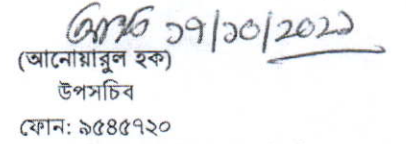 ১৭/১০/২০২১
(আনোয়ারুল হক)
উপসচিব
ফোন: ৯৫৪৫৭২০